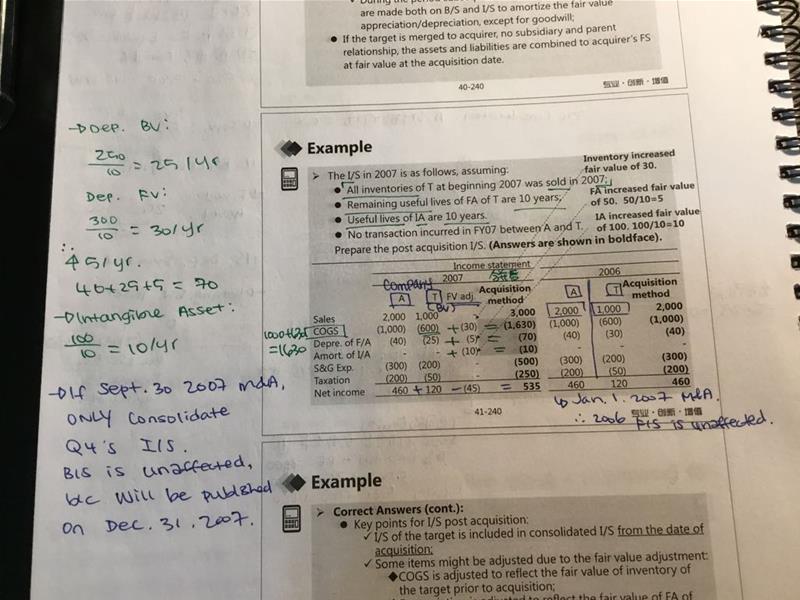 are made both on B/S and I/S to amortize the fair value
appreciation/depreciation, except for goodwill;
● If the target is merged to acquirer, no subsidiary and parent
relationship, the assets and liabilities are combined to acquirer's FS
at fair value at the acquisition date.
40-240
专业·创新·增值
→ Dep. BV:
250/10 = 25/yr
Dep. FV:
300/10 = 30/yr
∴
↑ 5/yr.
40+25+5 = 70
→ Intangible Asset:
100/10 = 10/yr
→ If Sept. 30 2007 M&A,
ONLY Consolidate
Q4's I/S.
B/S is unaffected,
b/c will be published
on Dec. 31. 2007.
Example
➢ The I/S in 2007 is as follows, assuming:
● All inventories of T at beginning 2007 was sold in 2007;
● Remaining useful lives of FA of T are 10 years;
● Useful lives of IA are 10 years.
● No transaction incurred in FY07 between A and T.
Prepare the post acquisition I/S. (Answers are shown in boldface).
Inventory increased
fair value of 30.
FA increased fair value
of 50. 50/10=5
IA increased fair value
of 100. 100/10=10
Income statement
2007 2006
Company
A T FV adj. Acquisition method A T Acquisition method
(BV)
Sales 2,000 1,000 - 3,000 2,000 1,000 2,000
COGS (1,000) (600) + (30) = (1,630) (1,000) (600) (1,000)
Depre. of F/A (40) (25) + (5) = (70) (40) (30) (40)
Amort. of I/A - - + (10) = (10) - - -
S&G Exp. (300) (200) (500) (300) (200) (300)
Taxation (200) (50) (250) (200) (50) (200)
Net income 460 + 120 - (45) = 535 460 120 460
=1630
↳ Jan. 1. 2007 M&A.
∴ 2006 F/S is unaffected.
41-240
专业·创新·增值
Example
➢ Correct Answers (cont.):
● Key points for I/S post acquisition:
✓ I/S of the target is included in consolidated I/S from the date of
acquisition;
✓ Some items might be adjusted due to the fair value adjustment:
◆COGS is adjusted to reflect the fair value of inventory of
the target prior to acquisition;